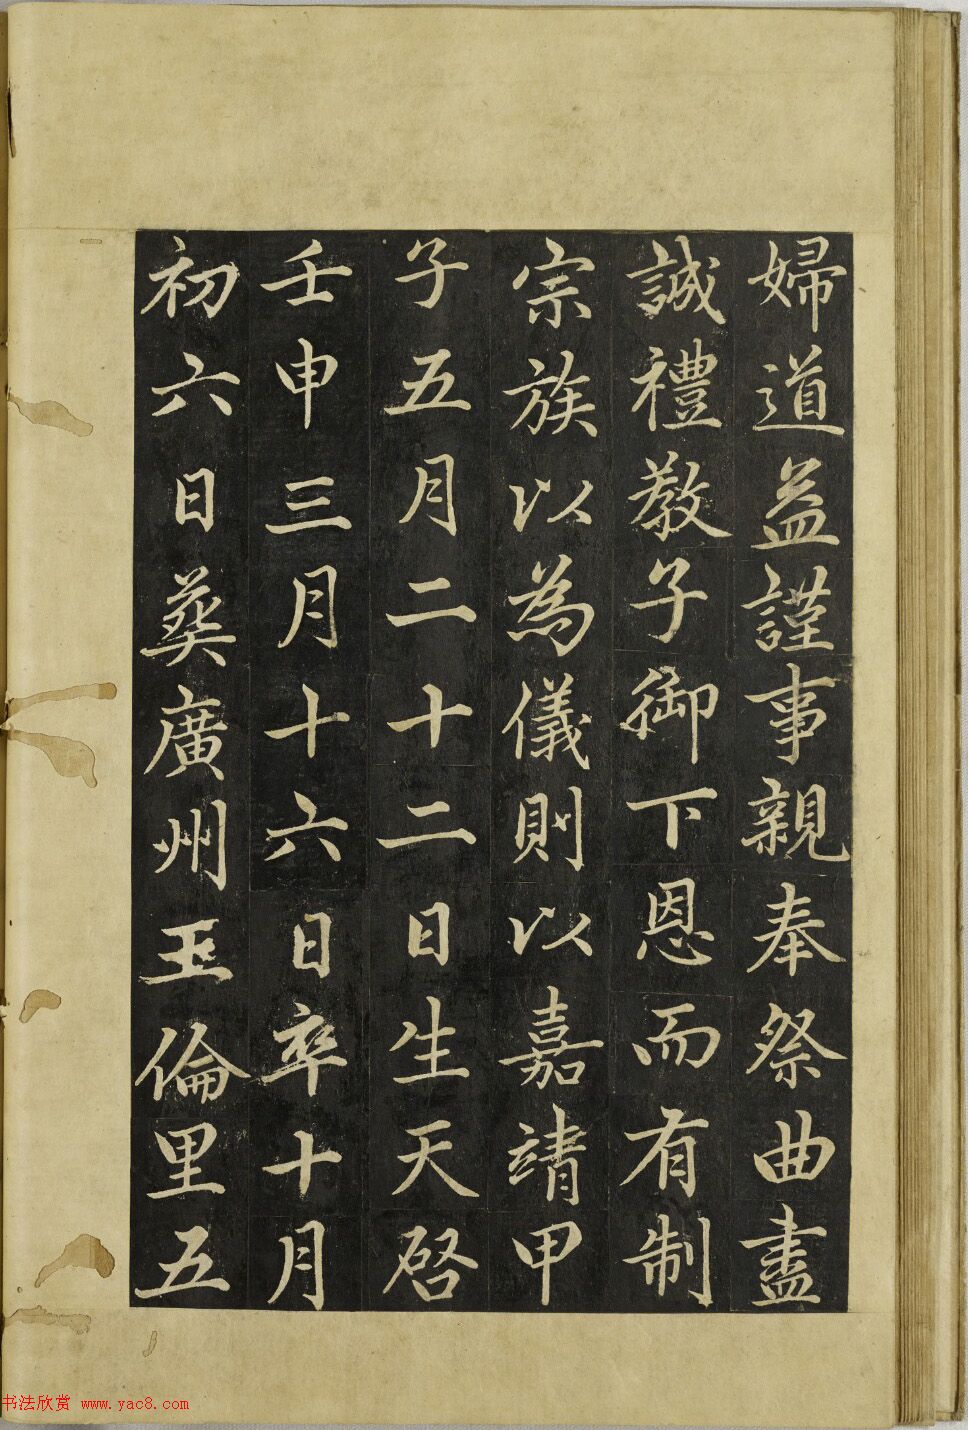 婦道益謹事親奉祭曲盡
誠禮教子御下恩而有制
宗族以為儀則以嘉靖甲
子五月二十二日生天啓
壬申三月十六日卒十月
初六日葬廣州玉倫里五
书法欣赏 www.yac8.com